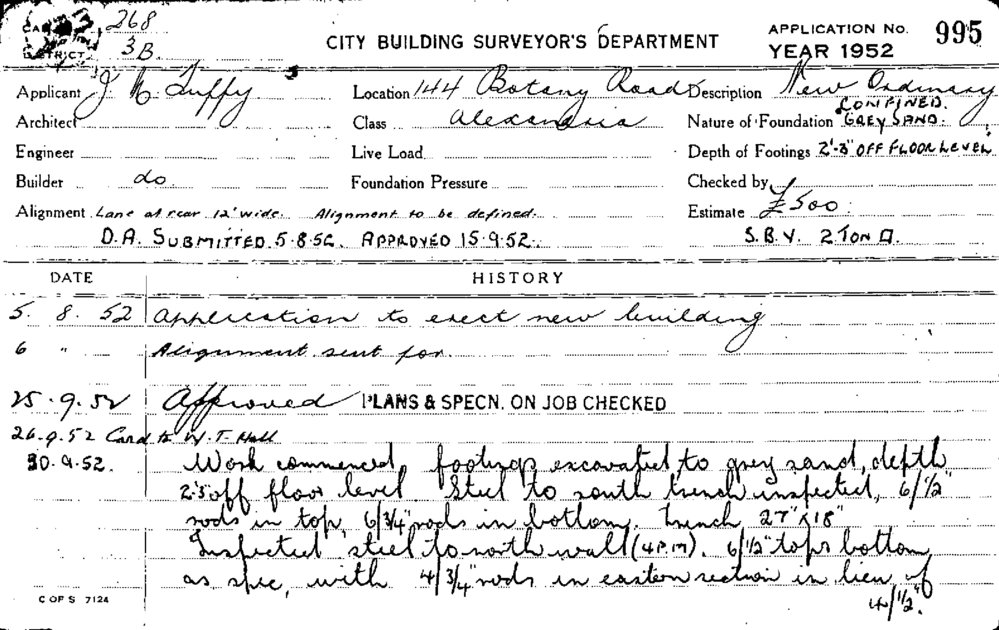 268
3B
CITY BUILDING SURVEYOR'S DEPARTMENT
APPLICATION No. 995
YEAR 1952
Applicant J M Duffy Location 144 Botany Road Description New Ordinary
Architect Class Alexandria Nature of Foundation CONFINED. GREY SAND.
Engineer Live Load Depth of Footings 2'-3" OFF FLOOR LEVEL
Builder do. Foundation Pressure Checked by
Alignment Lane at rear 12' wide. Alignment to be defined. Estimate £500:
D.A. SUBMITTED 5.8.52. APPROVED 15.9.52. S.B.V. 2 TON □.
DATE HISTORY
5. 8. 52 Application to erect new building
6 " Alignment sent for.
25.9.52 Approved PLANS & SPECN. ON JOB CHECKED
26.9.52 Card to W. T. Hall
30.9.52. Work commenced, footings excavated to grey sand, depth
2'3" off floor level. Steel to south trench inspected, 6/1/2"
rods in top, 6/3/4" rods in bottom. Trench 27" x 18"
Inspected steel to north wall (4 P.M). 6/1/2" top & bottom
as spec, with 4/3/4" rods in eastern section in lieu of
4/1/2".
C OF S 7124